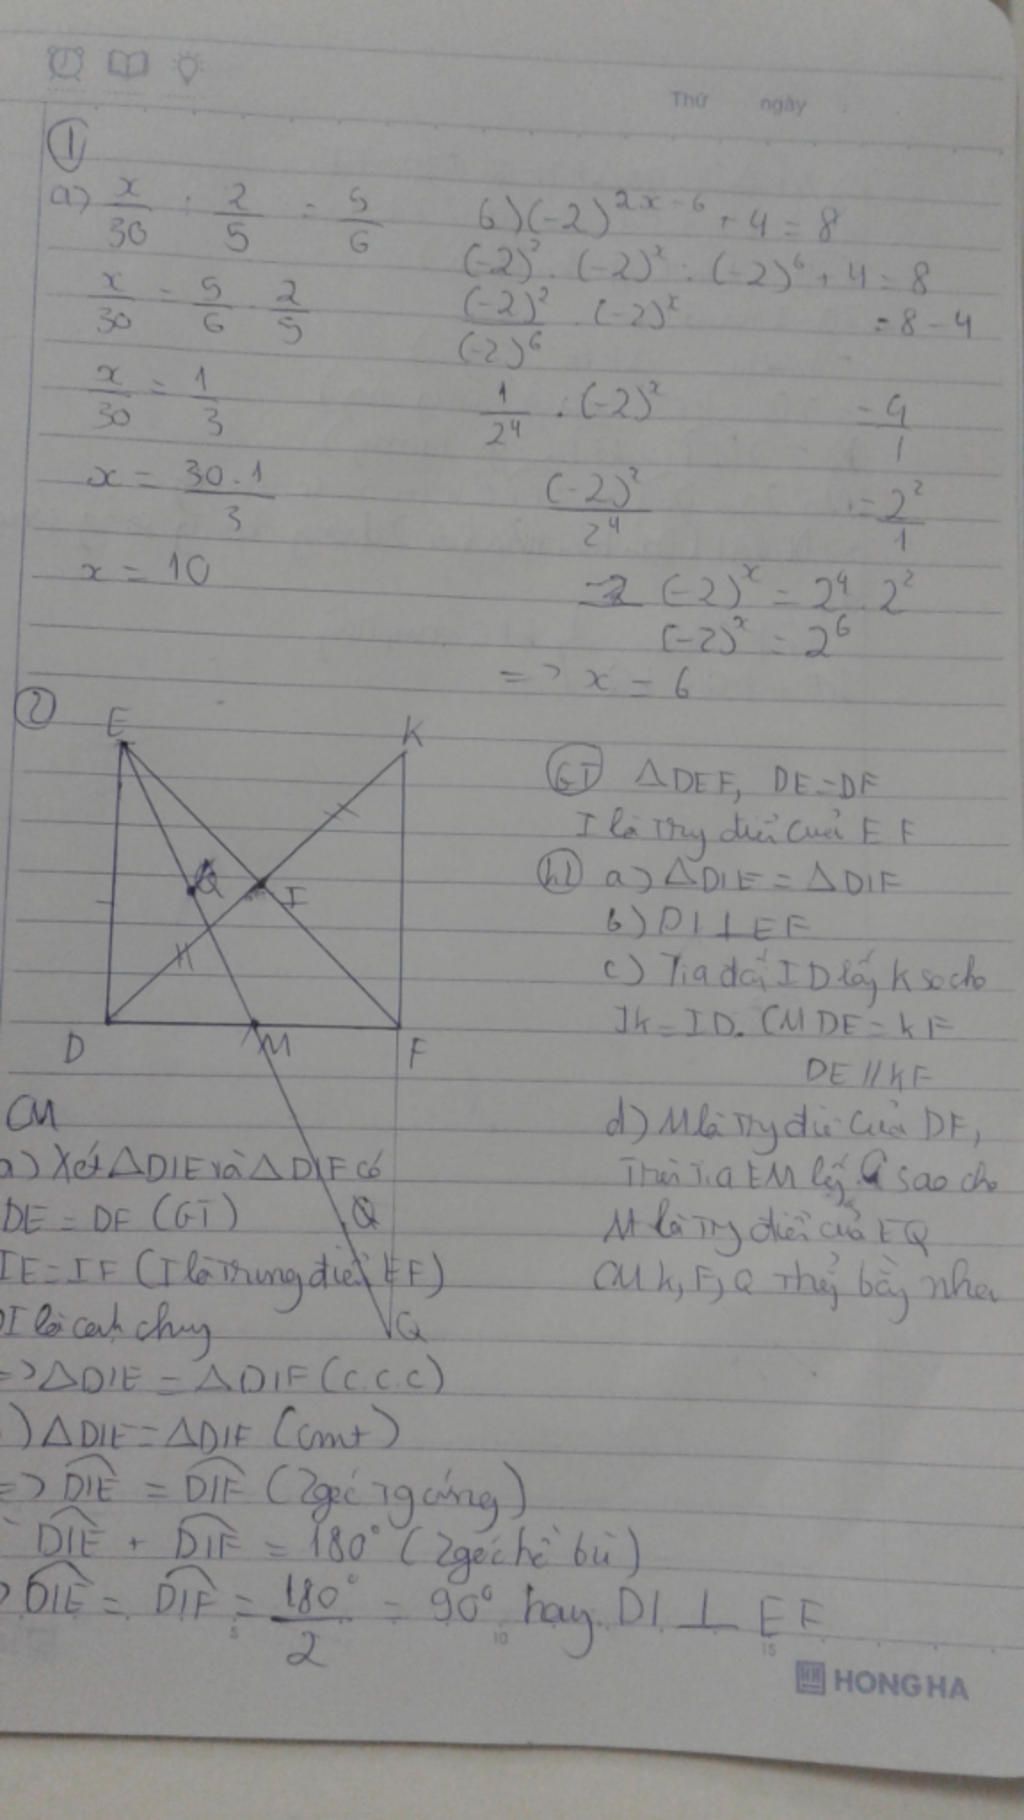 Thứ ngày
①
a) x/30 : 2/5 = 5/6
x/30 = 5/6 . 2/5
x/30 = 1/3
x = 30.1/3
x = 10
b) (-2)^{2x-6} + 4 = 8
(-2)^2 . (-2)^x : (-2)^6 + 4 = 8
(-2)^2/(-2)^6 . (-2)^x = 8 - 4
1/2^4 . (-2)^x = 4/1
(-2)^x/2^4 = 2^2/1
(-2)^x = 2^4 . 2^2
(-2)^x = 2^6
=> x = 6
②
E
K
Q
I
D
M
F
Q
Q
GT ΔDEF, DE=DF
I là Trg điể cuả EF
KL a) ΔDIE = ΔDIF
b) DI ⊥ EF
c) Tia đối ID lấy K so cho
IK = ID. CM DE = KF
DE // KF
d) M là Trg điể của DF,
Trên Tia EM lấy Q sao cho
M là Trg điể của EQ
CM K, F, Q Thẳg
CM
a) Xét ΔDIE và ΔDIF có
DE = DF (GT)
IE = IF (I là Trung điể EF)
DI là cạnh chug
=> ΔDIE = ΔDIF (c.c.c)
) ΔDIE = ΔDIF (cmt)
=> DIE = DIF (2góc Tg ứng)
DIE + DIF = 180° (2góc kề bù)
=> DIE = DIF = 180°/2 = 90° hay DI ⊥ EF
5 10 15
HONG HA